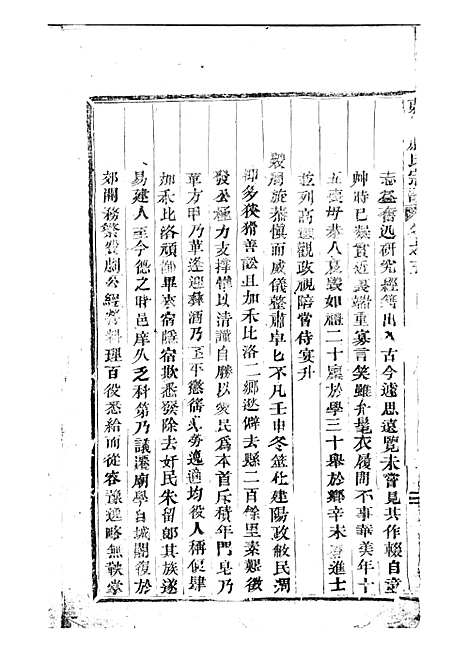 氏宗譜
志益奮迅研究經籍出入古今遽思遠覽未嘗見其作輟自童
丱時已凝貫近裏端重寡言笑雖弁髦衣履間不事華美年十
五喪母恭人哀毀如禮二十廩於學三十舉於鄉辛未登進士
並列高選觀政視陪常侍宴升
殿周旋恭慎而威儀整肅卓七不凡壬申冬筮仕建陽政敝民凋
抑多狡猾善訟且加禾比洛二鄉遐僻去縣二百餘里素艱徵
發公極力支撐雙以清謹自勝以愛民為本首斥積年門皂乃
革方甲乃革逢迎彝酒乃至平徽儲貳勞逸適均役人稱便肆
加禾比洛頑獅畢裏宿隱宿欺悉發除去奸民朱留郎其族遂
易建人至今德之時邑庠久乏科第乃議遷廟學自城闉復於
郊關務繁役劇公經營料理百役悉給而從容豫逸略無鞅掌